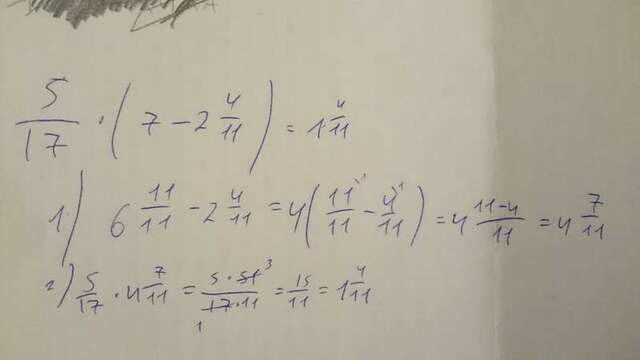 5/17 · (7 − 2 4/11) = 1 4/11
1) 6 11/11 − 2 4/11 = 4(11/11 − 4/11) = 4 11−4/11 = 4 7/11
2) 5/17 · 4 7/11 = 5 · 51 3/17 · 11 1 = 15/11 = 1 4/11